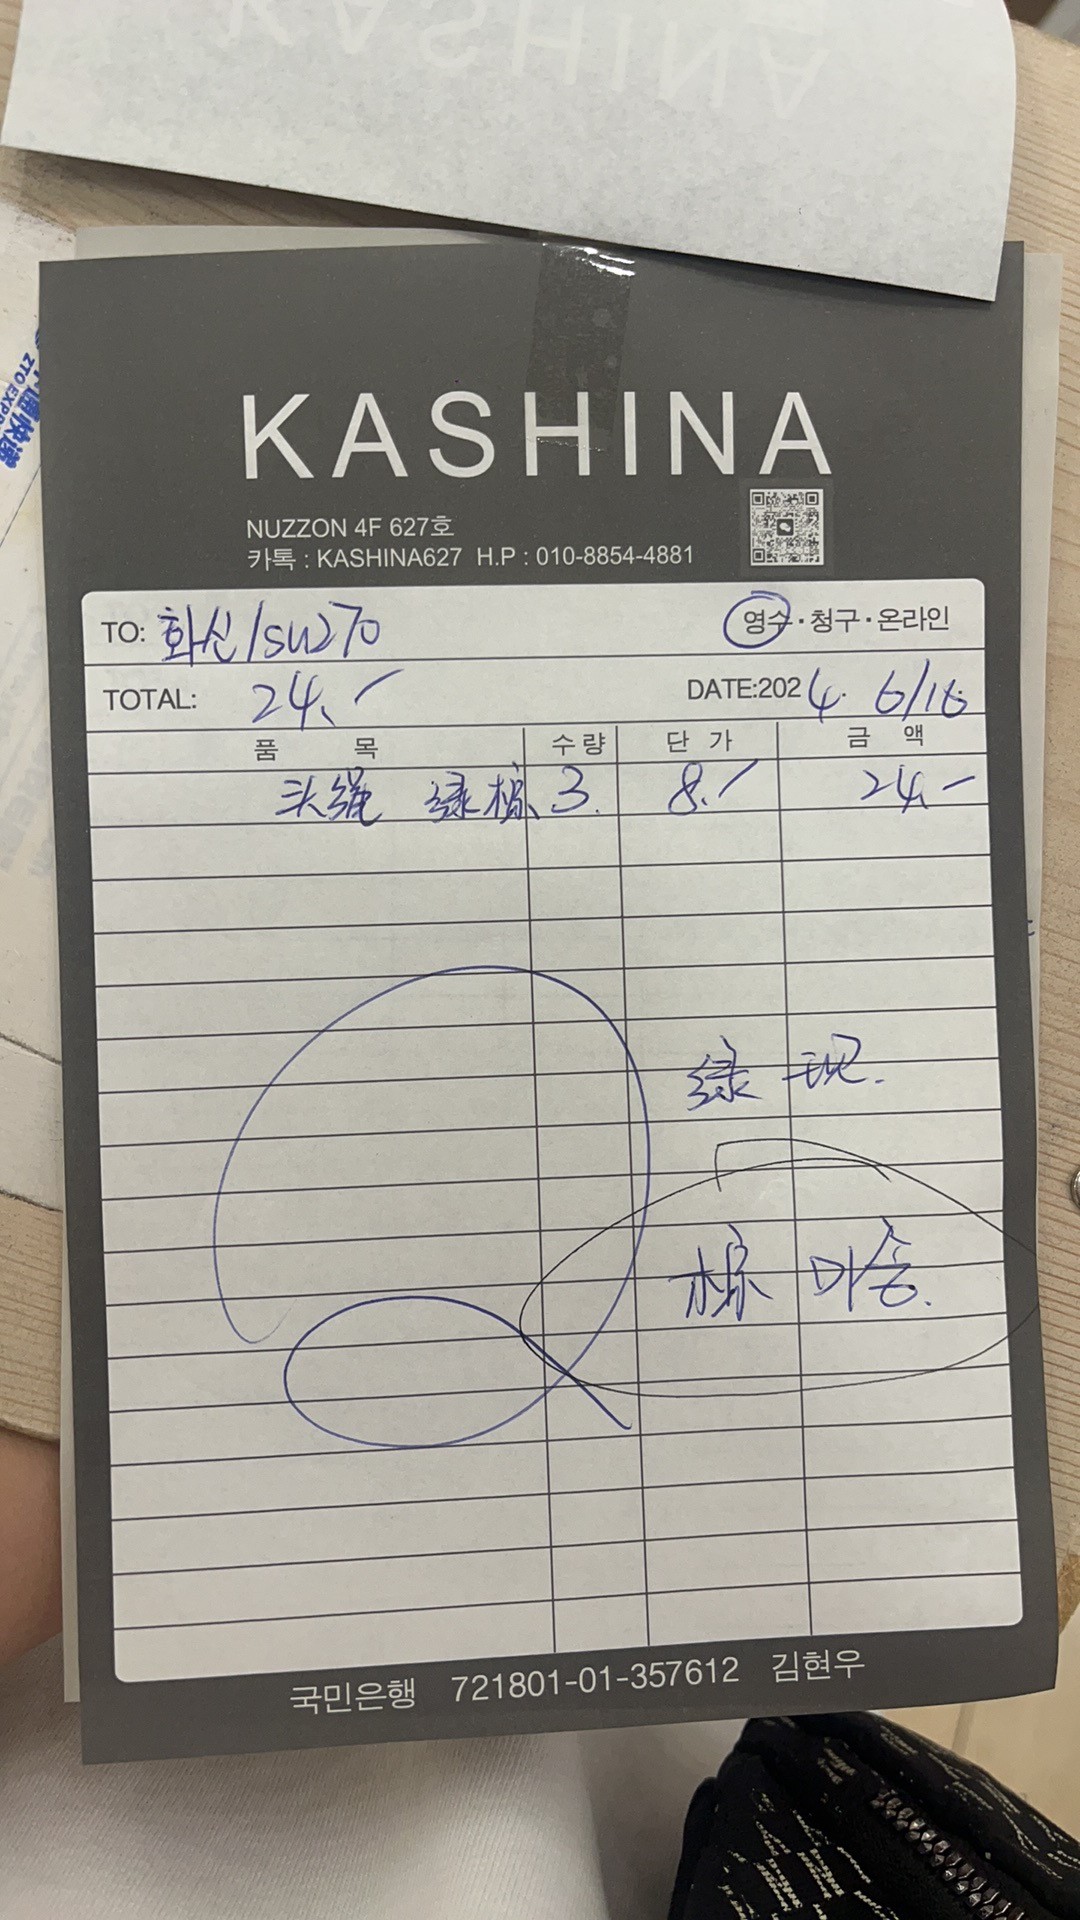 KASHINA
KASHINA
NUZZON 4F 627호
카톡 : KASHINA627 H.P : 010-8854-4881
TO: 화신/su270 영수·청구·온라인
TOTAL: 24.- DATE:2024. 6/16
품 목 수량 단 가 금 액
头绳 绿棕 3. 8.- 24.-
绿 现.
棕 미송.
국민은행 721801-01-357612 김현우
ZTO EXPR